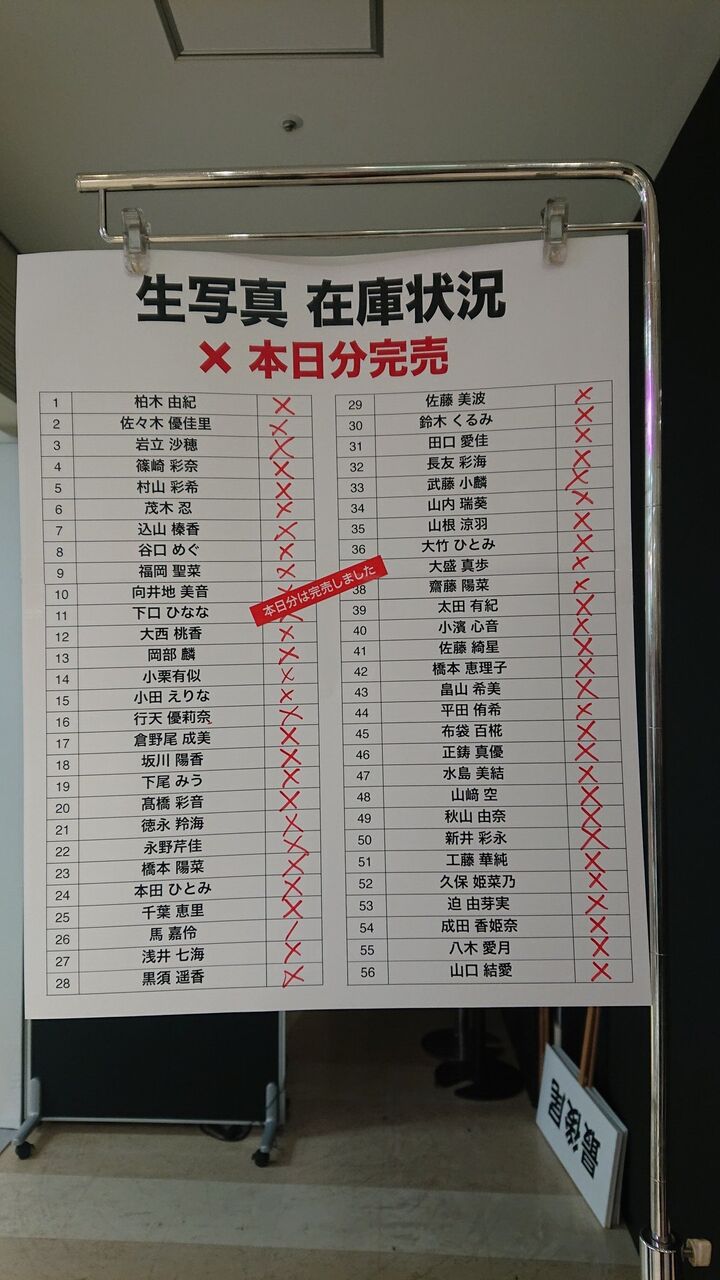 生写真 在庫状況
× 本日分完売
1 柏木 由紀 ×
2 佐々木 優佳里 ×
3 岩立 沙穂 ×
4 篠崎 彩奈 ×
5 村山 彩希 ×
6 茂木 忍 ×
7 込山 榛香 ×
8 谷口 めぐ ×
9 福岡 聖菜 ×
10 向井地 美音
11 下口 ひなな
12 大西 桃香 ×
13 岡部 麟 ×
14 小栗有似 ×
15 小田 えりな ×
16 行天 優莉奈 ×
17 倉野尾 成美 ×
18 坂川 陽香 ×
19 下尾 みう ×
20 髙橋 彩音 ×
21 徳永 羚海 ×
22 永野芹佳 ×
23 橋本 陽菜 ×
24 本田 ひとみ ×
25 千葉 恵里 ×
26 馬 嘉伶
27 浅井 七海 ×
28 黒須 遥香 ×
本日分は完売しました
29 佐藤 美波 ×
30 鈴木 くるみ ×
31 田口 愛佳 ×
32 長友 彩海 ×
33 武藤 小麟 ×
34 山内 瑞葵 ×
35 山根 涼羽 ×
36 大竹 ひとみ ×
大盛 真歩 ×
38 齋藤 陽菜 ×
39 太田 有紀 ×
40 小濱 心音 ×
41 佐藤 綺星 ×
42 橋本 恵理子 ×
43 畠山 希美 ×
44 平田 侑希 ×
45 布袋 百椛 ×
46 正鋳 真優 ×
47 水島 美結 ×
48 山﨑 空 ×
49 秋山 由奈 ×
50 新井 彩永 ×
51 工藤 華純 ×
52 久保 姫菜乃 ×
53 迫 由芽実 ×
54 成田 香姫奈 ×
55 八木 愛月 ×
56 山口 結愛 ×
最後尾